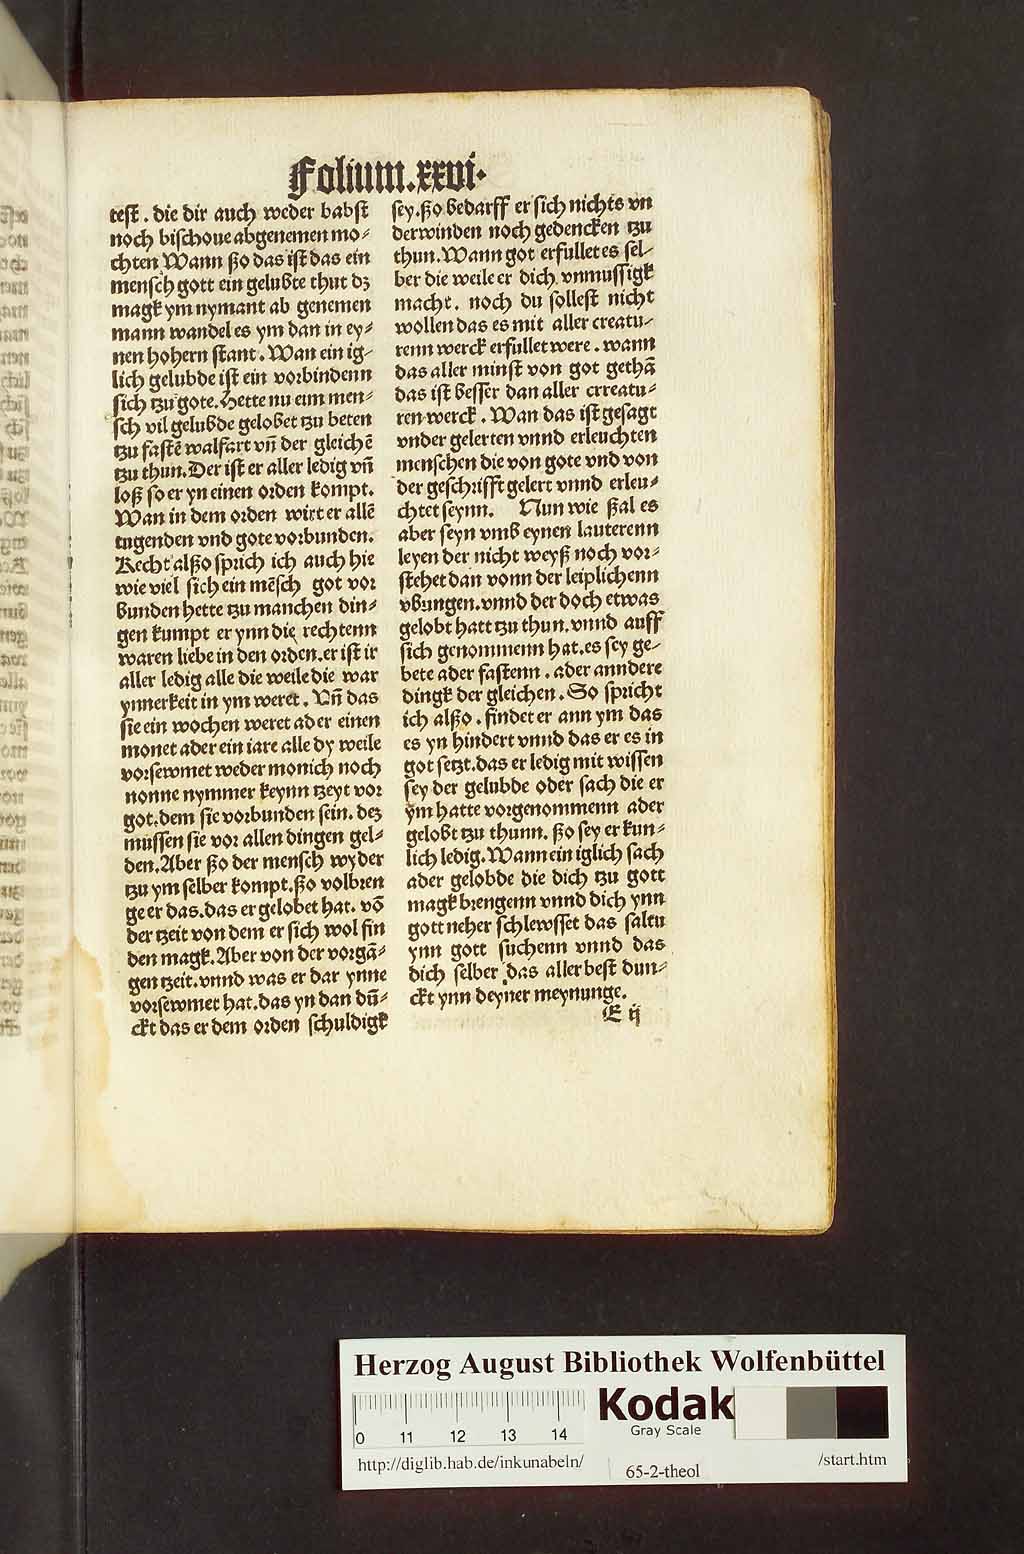 Folium.xxvi.
test. die dir auch weder babst
noch bischoue abgenemen mo⸗
chten Wann ßo das ist das ein
mensch gott ein gelubte thut dʒ
magk ym nymant ab genemen
mann wandel es ym dan in ey⸗
nen hohern stant. Wan ein ig⸗
lich gelubde ist ein vorbindenn
sich tzu gote. Hette nu eim men⸗
sch vil gelubde gelobet tzu beten
tzu fastē walfart vn̄ der gleichē
tzu thun. Der ist er aller ledig vn̄
loß so er yn einen orden kompt.
Wan in dem orden wirt er allē
tugenden vnd gote vorbunden.
Recht alßo sprich ich auch hie
wie viel sich ein mēsch got vor
bunden hette tzu manchen din⸗
gen kumpt er ynn die rechtenn
waren liebe in den orden. er ist ir
aller ledig alle die weile die war
ynnerkeit in ym weret. Vn̄ das
sie ein wochen weret ader einen
monet ader ein iare alle dy weile
vorsewmet weder monich noch
nonne nymmer keynn tzeyt vor
got. dem sie vorbunden sein. deʒ
mussen sie vor allen dingen gel⸗
den. Aber ßo der mensch wyder
tzu ym selber kompt. ßo volbren
ge er das. das er gelobet hat. vō
der tzeit von dem er sich wol fin
den magk. Aber von der vorgā⸗
gen tzeit. vnnd was er dar ynne
vorsewmet hat. das yn dan dū⸗
ckt das er dem orden schuldigk
sey. ßo bedarff er sich nichts vn
derwinden noch gedencken tzu
thun. Wann got erfullet es sel⸗
ber die weile er dich vnmussigk
macht. noch du sollest nicht
wollen das es mit aller creatu⸗
renn werck erfullet were. wann
das aller minst von got gethā
das ist besser dan aller crreatu⸗
ren werck. Wan das ist gesagt
vnder gelerten vnnd erleuchten
menschen die von gote vnd von
der geschrifft gelert vnnd erleu⸗
chtet seynn. Nun wie ßal es
aber seyn vmb eynen lauterenn
leyen der nicht weyß noch vor⸗
stehet dan vonn der leiplichenn
vbungen. vnnd der doch etwas
gelobt hatt tzu thun. vnnd auff
sich genommenn hat. es sey ge⸗
bete ader fastenn. ader anndere
dingk der gleichen. So spricht
ich alßo. findet er ann ym das
es yn hindert vnnd das er es in
got setzt. das er ledig mit wissen
sey der gelubde oder sach die er
ym hatte vorgenommenn ader
gelobt tzu thunn. ßo sey er kun⸗
lich ledig. Wann ein iglich sach
ader gelobde die dich tzu gott
magk brengenn vnnd dich ynn
gott neher schlewsset das saltu
ynn gott suchenn vnnd das
dich selber das aller best dun⸗
ckt ynn deyner meynunge.
E ij
Herzog August Bibliothek Wolfenbüttel
0 11 12 13 14
Kodak
Gray Scale
http://diglib.hab.de/inkunabeln/
65-2-theol
/start.htm